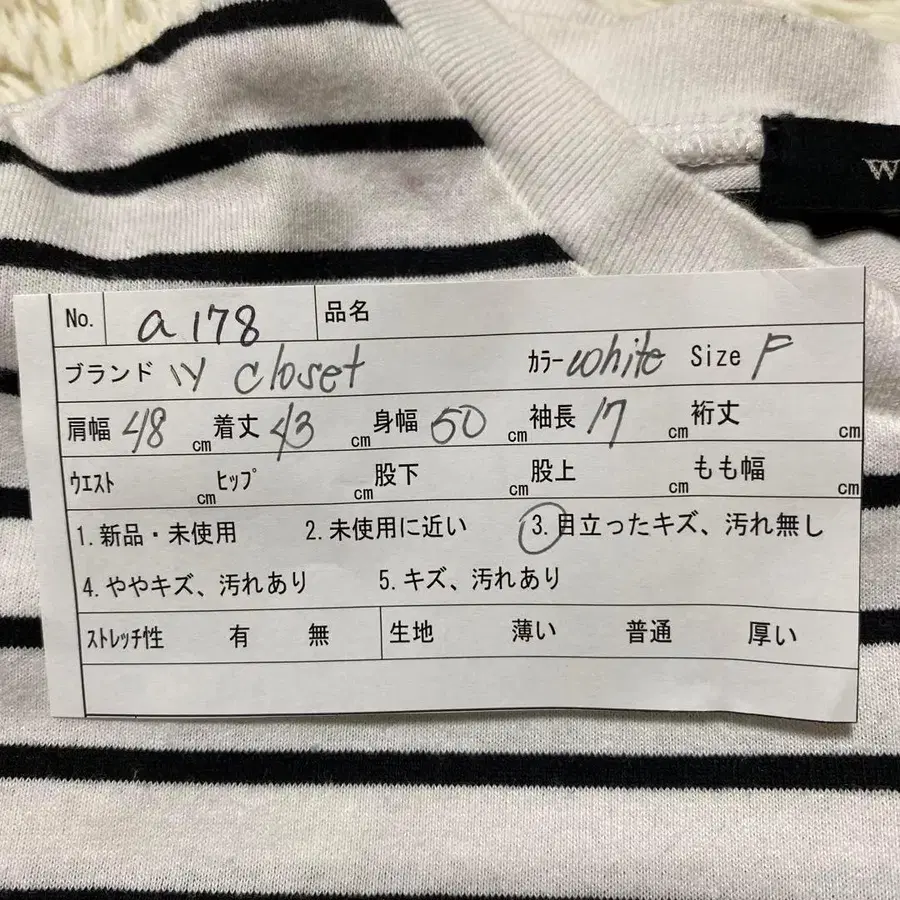 W
No. a178 品名
ブランド W closet カラー white Size F
肩幅 48 cm 着丈 43 cm 身幅 50 cm 袖長 17 cm 裄丈 cm
ウエスト cm ヒップ cm 股下 cm 股上 cm もも幅 cm
1. 新品・未使用 2. 未使用に近い 3. 目立ったキズ、汚れ無し
4. ややキズ、汚れあり 5. キズ、汚れあり
ストレッチ性 有 無 生地 薄い 普通 厚い